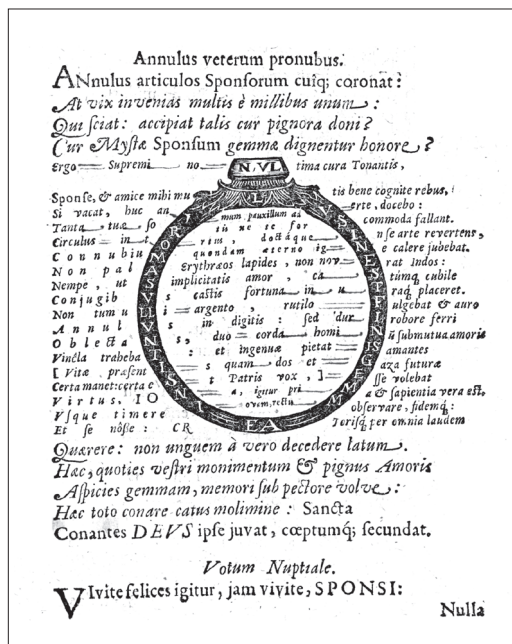 Annulus veterum pronubus.
ANnulus articulos Sponsorum cuiq; coronat:
At vix invenias multis è millibus unum:
Qui sciat: accipiat talis cur pignora doni?
Cur Mystæ Sponsum gemmæ dignentur honore?
Ergo Supremi no N, VL tima cura Tonantis,
Sponse, & amice mihi mu L tis bene cognite rebus,
Si vacat, huc an mum pauxillum ad erte, docebo:
Tanta tuæ so is ne te for commoda fallant.
Circulus in t rtus, doctáque nse arte revertens,
Connubiu quondam æterno ig e calere jubebat.
Non pal Erythræos lapides, non nov rat Indos:
Nempe, ut implicitatis amor, ca tumq cubile
Conjugib s castis fortuna in u raq placeret.
Non tumu argento, rutilo ulgebat & auro
Annul s in digitis: sed dur robore ferri
Oblecta s, duo corda homi ũ submutua amoris
Vincla traheba : et ingenuæ pietat amantes
[Vitæ præsent s quam dos et aza futuræ
Certa manet: certa e t Patris vox,] sse volebat
Virtus. IO a, igitur pri a & sapientia vera est,
Vsque timere ovem, rectu observare, fidemq:
Et se nôsse: CR EA Torisq; per omnia laudem
Quærere: non unguem à vero decedere latum.
Hæc, quoties vestri monimentum & pignus Amoris
Aspicies gemmam, memori sub pectore volve:
Hæc toto conare catus molimine: Sancta
Conantes DEVS ipse juvat, cœptumq; secundat.
Votum Nuptiale.
VIvite felices igitur, jam vivite, SPONSI:
Nulla